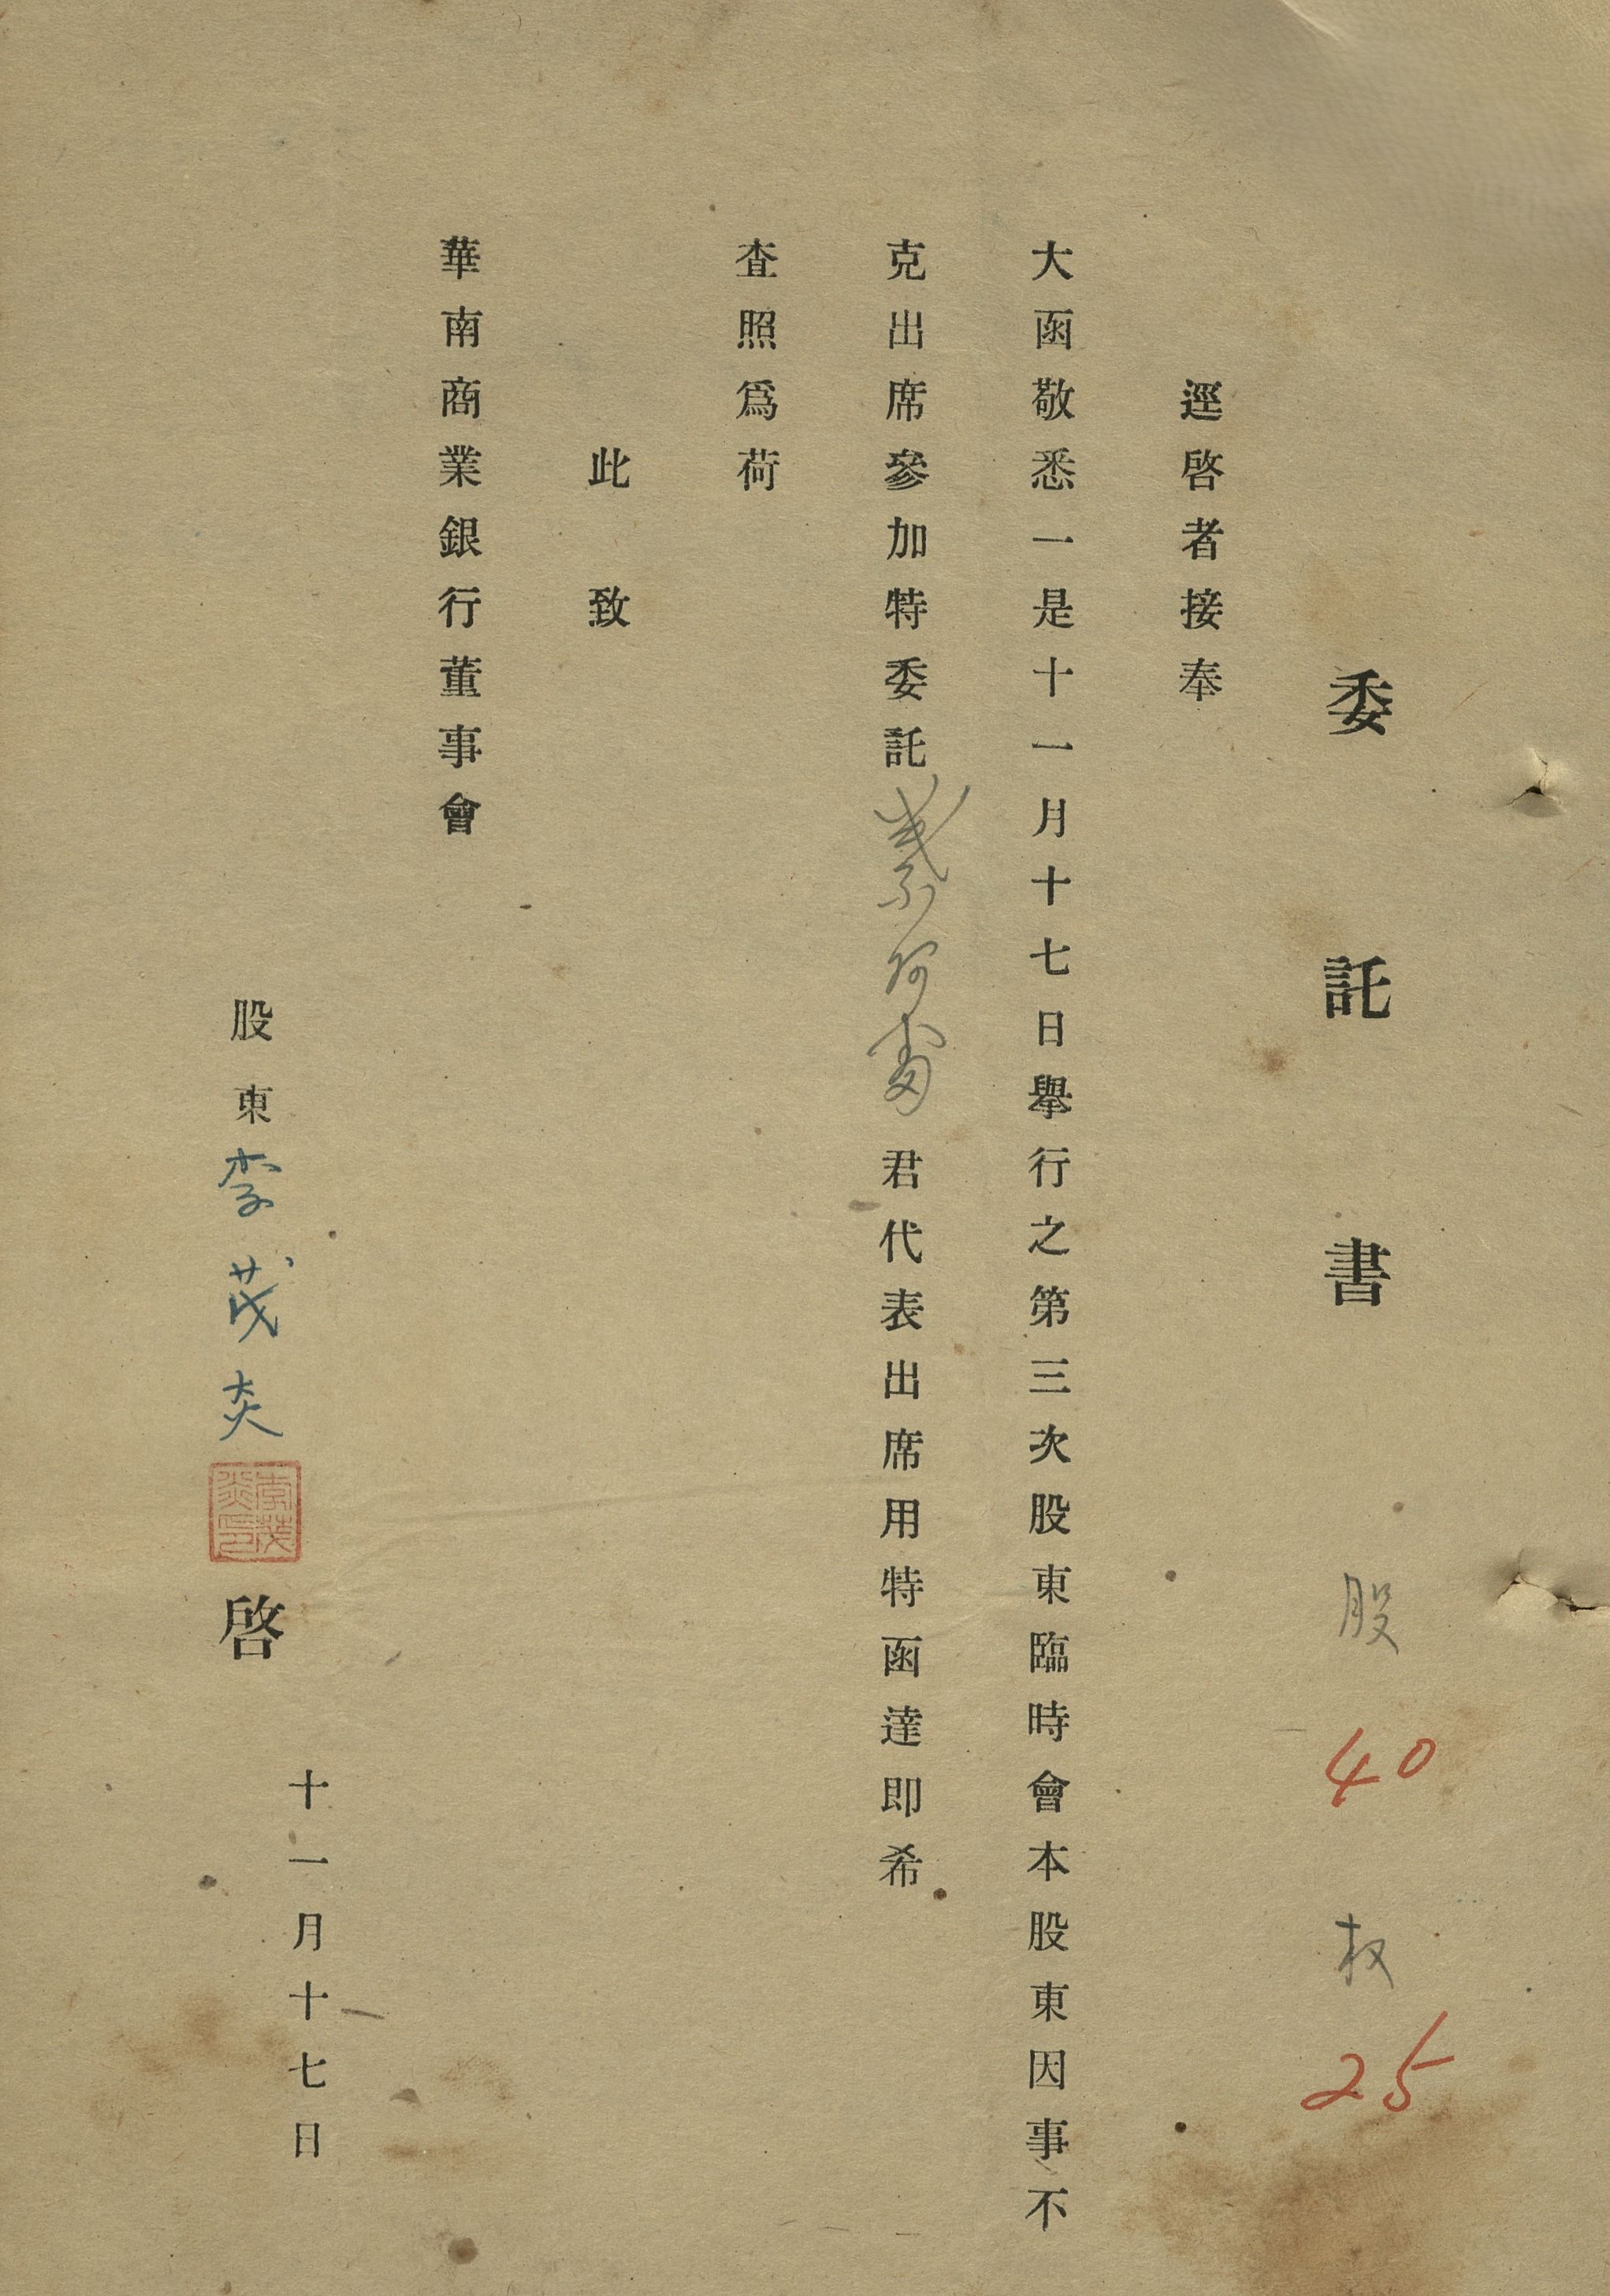 委託書 股 40 权 25
逕啓者接奉
大函敬悉一是十一月十七日舉行之第三次股東臨時會本股東因事不
克出席參加特委託 君代表出席用特函達即希
查照爲荷
此致
華南商業銀行董事會
十一月十七日
股東李茂炎 啓
李茂炎印